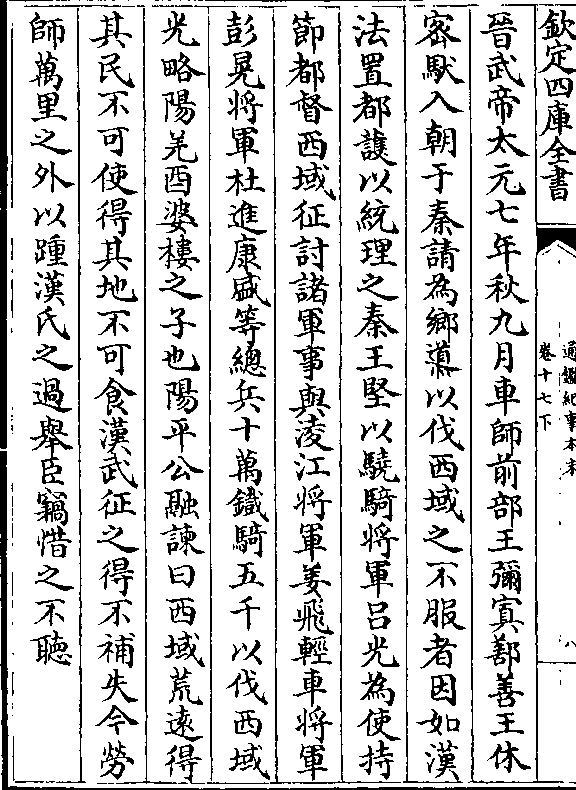 欽定四庫全書
通鑑紀事本末
卷十七下
八
晉武帝太元七年秋九月車師前部王彌寘鄯善王休
密馱入朝于秦請為鄉導以伐西域之不服者因如漢
法置都護以統理之秦王堅以驍騎將軍呂光為使持
節都督西域征討諸軍事與淩江將軍姜飛輕車將軍
彭晃將軍杜進康盛等總兵十萬鐵騎五千以伐西域
光略陽羌酋婆樓之子也陽平公融諫曰西域荒遠得
其民不可使得其地不可食漢武征之得不補失今勞
師萬里之外以踵漢氏之過舉臣竊惜之不聽